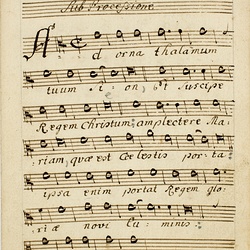 Sub Processione
Adorna thalamum
tuum Sion et suscipe
Regem Christum, amplectere Ma-
riam, quæ est Cœlestis porta
ipsa enim portat Regem glo-
riæ novi Luminis